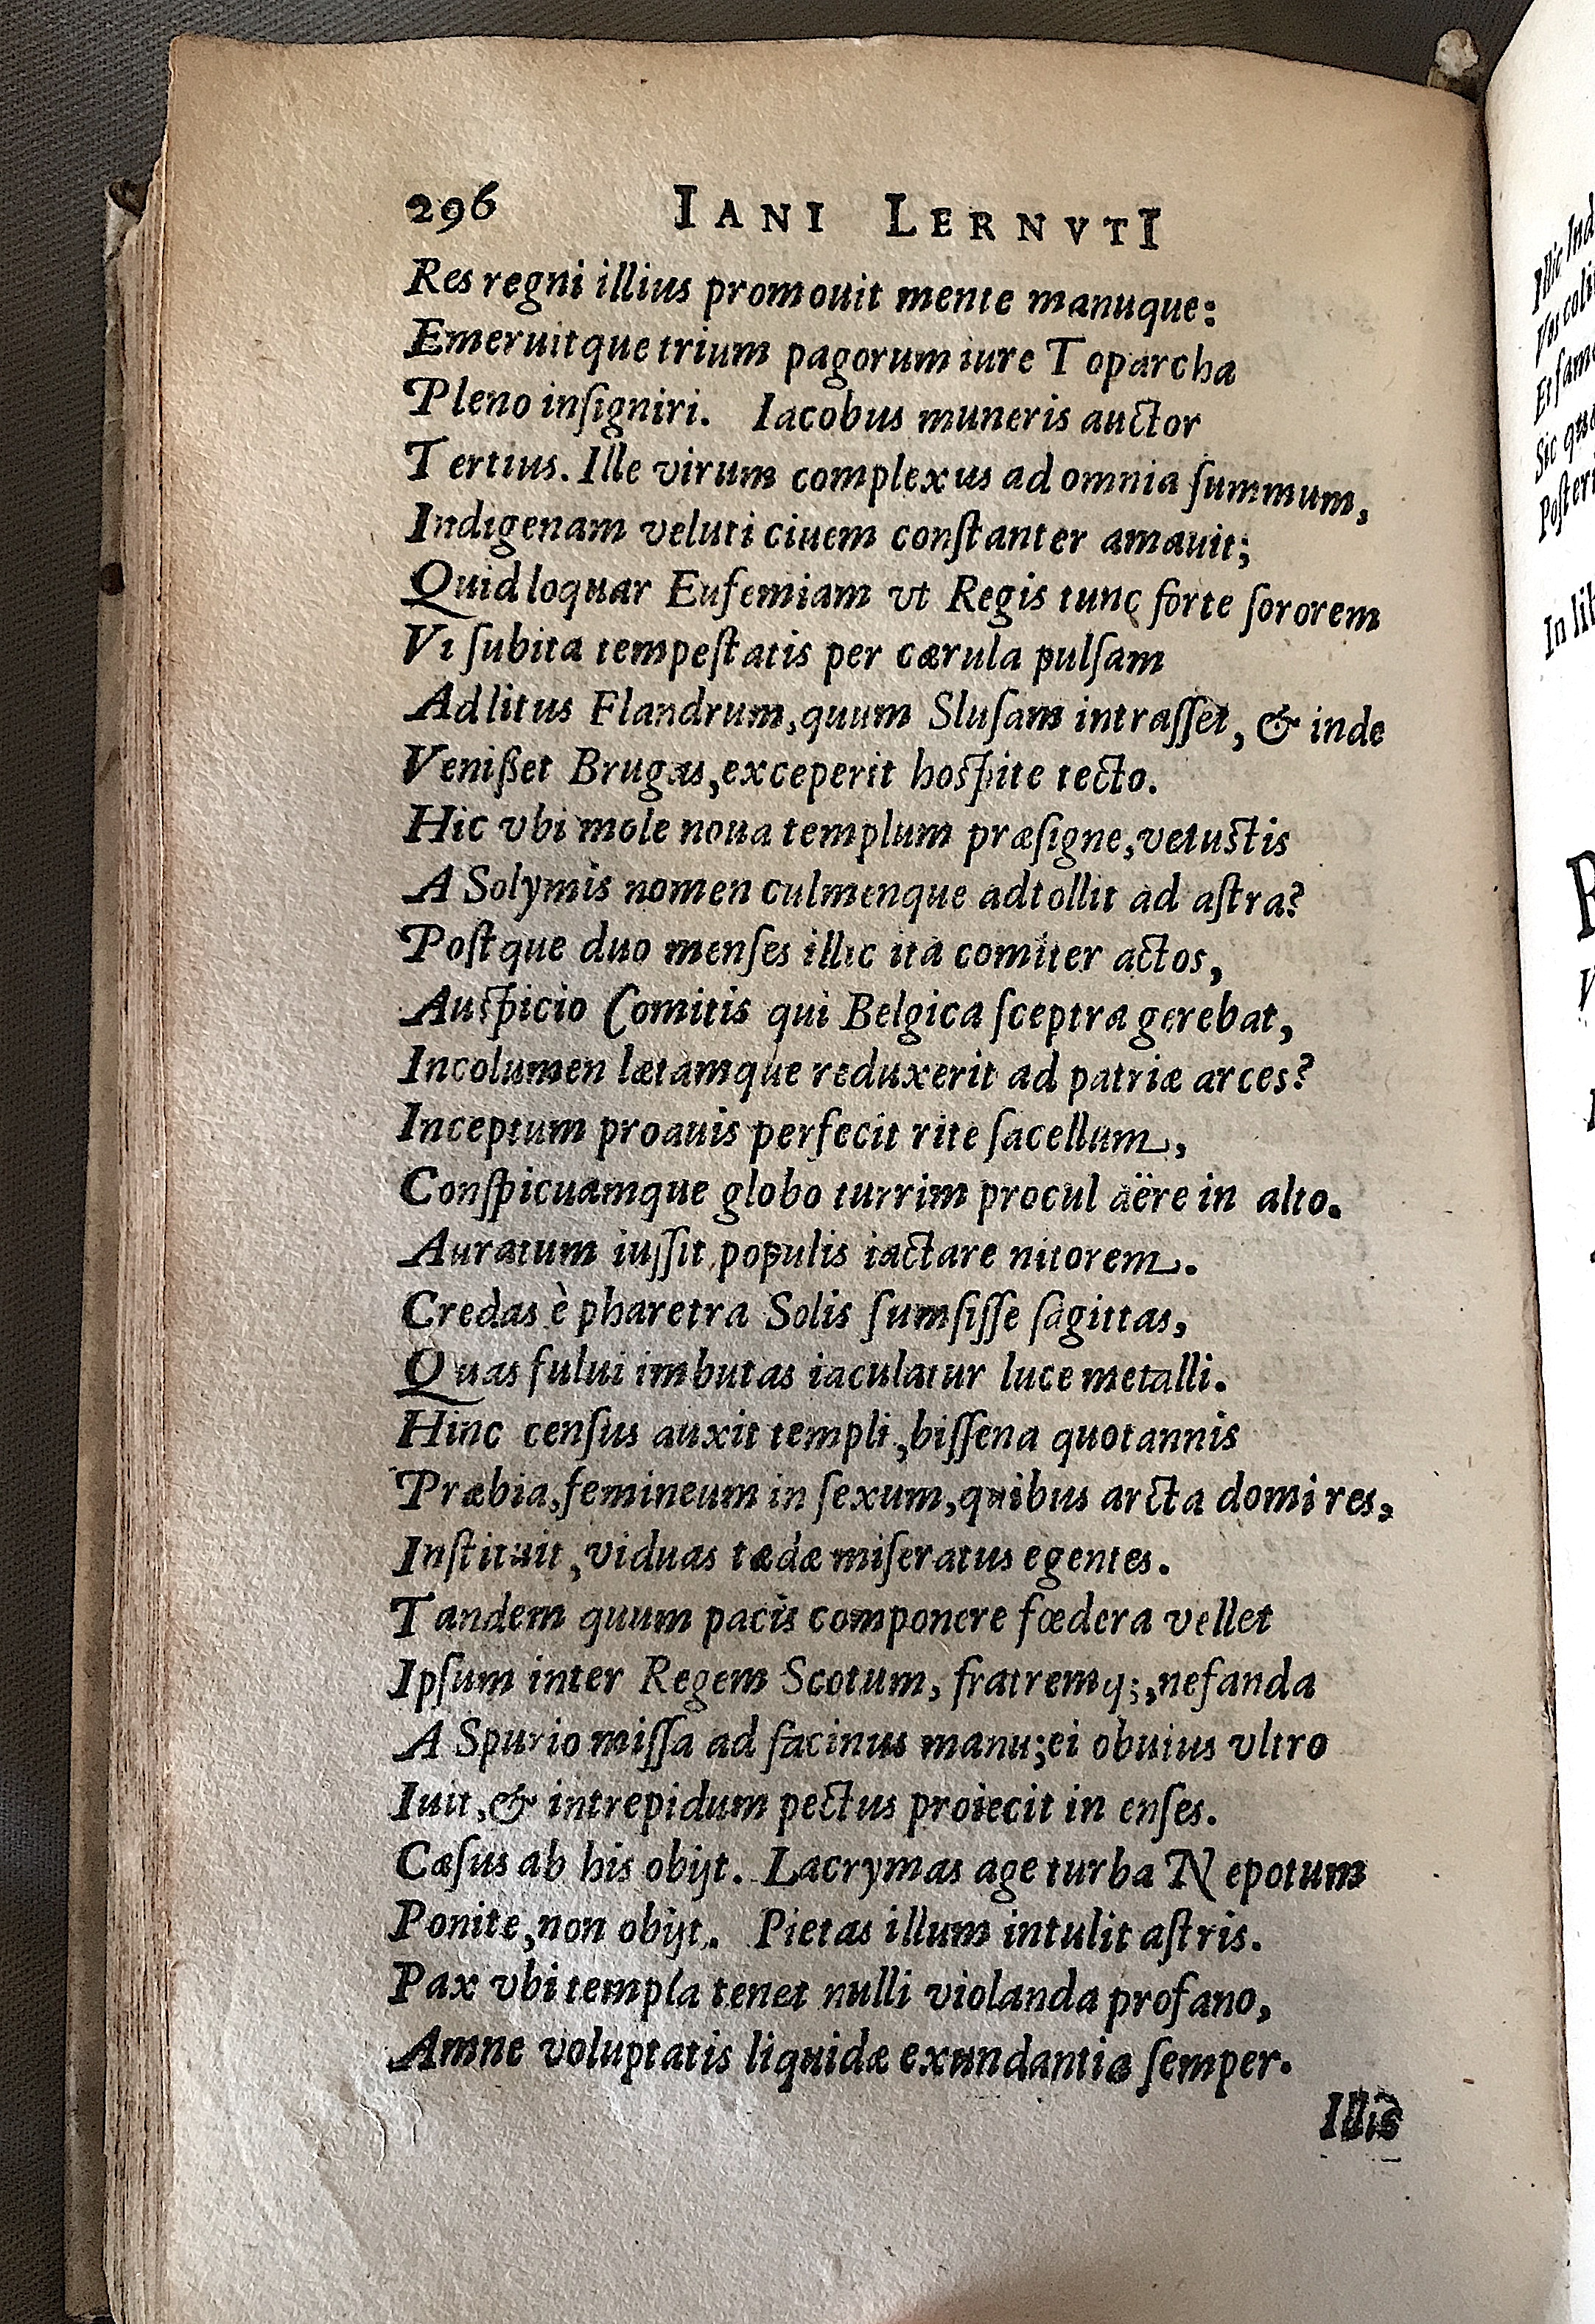 296 IANI LERNVTI
Res regni illius promouit mente manuque:
Emeruitque trium pagorum iure Toparcha
Pleno insigniri. Iacobus muneris auctor
Tertius. Ille virum complexus ad omnia summum,
Indigenam veluti ciuem constanter amauit;
Quid loquar Eufemiam vt Regis tunc forte sororem
Vi subita tempestatis per cærula pulsam
Ad litus Flandrum, quum Slusam intrasset, & inde
Venißet Brugas, exceperit hospite tecto.
Hic vbi mole noua templum præsigne, vetustis
A Solymis nomen culmenque adtollit ad astra?
Postque duo menses illic ita comiter actos,
Auspicio Comitis qui Belgica sceptra gerebat,
Incolumen lætamque reduxerit ad patriæ arces?
Inceptum proauis perfecit rite sacellum,
Conspicuamque globo turrim procul aëre in alto.
Auratum iussit populis iactare nitorem.
Credas è pharetra Solis sumsisse sagittas,
Quas fului imbutas iaculatur luce metalli.
Hinc census auxit templi, bissena quotannis
Præbia, femineum in sexum, quibus arcta domi res,
Instituit, viduas tædæ miseratus egentes.
Tandem quum pacis componere fœdera vellet
Ipsum inter Regem Scotum, fratremq;, nefanda
A Spurio missa ad facinus manu; ei obuius vltro
Iuit, & intrepidum pectus proiecit in enses.
Cæsus ab his obijt. Lacrymas age turba Nepotum
Ponite, non obijt. Pietas illum intulit astris.
Pax vbi templa tenet nulli violanda profano,
Amne voluptatis liquidæ exundantia semper.
Illis
Illic
Vos
Sic
In